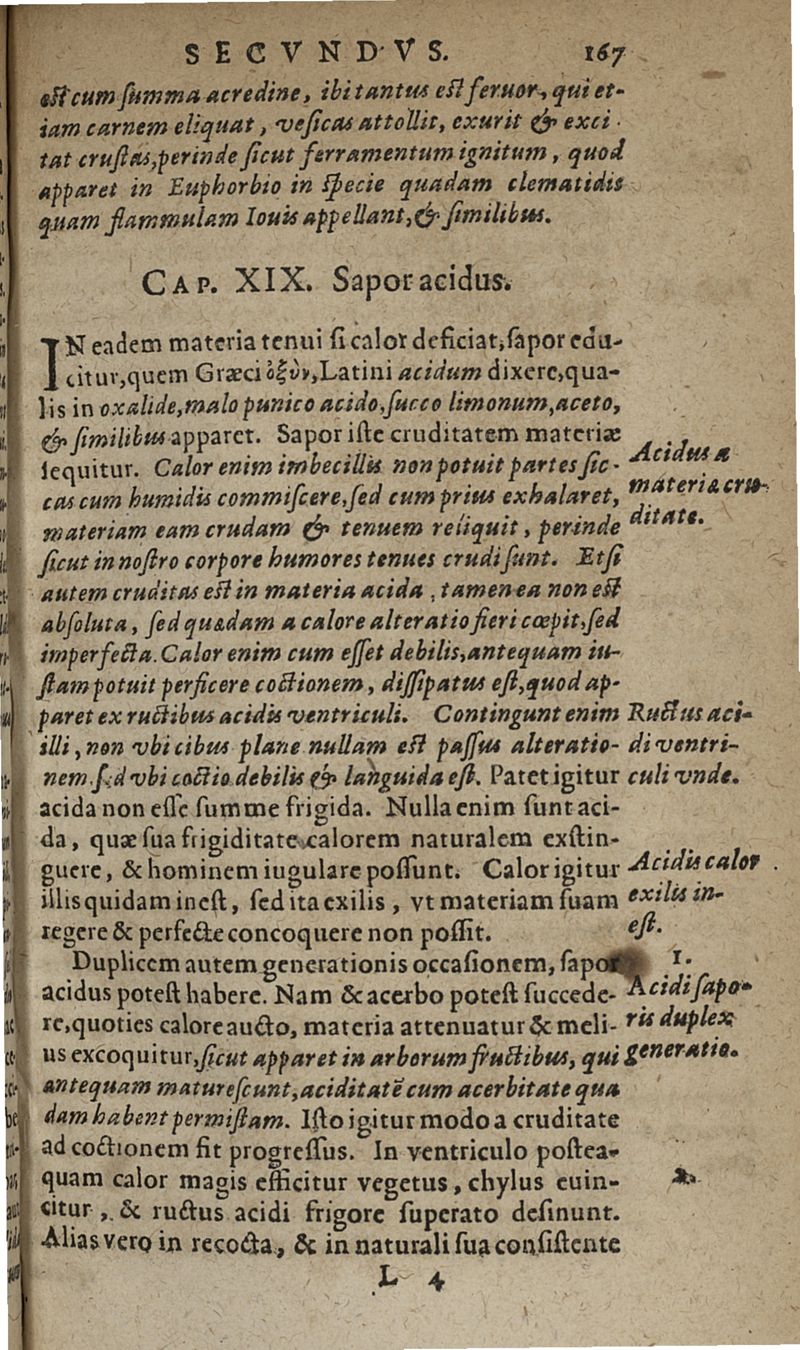 SECVNDVS. 167
est cum summa acredine, ibi tantus est feruor, qui et-
iam carnem eliquat, vesicas attollit, exurit & exci-
tat crustas, perinde sicut ferramentum ignitum, quod
apparet in Euphorbio in specie quadam clematidis
quam flammulam Iouis appellant, & similibus.
CAP. XIX. Sapor acidus.
IN eadem materia tenui si calor deficiat, sapor edu-
citur, quem Græci ὀξὺν, Latini acidum dixere, qua-
lis in oxalide, malo punico acido, succo limonum, aceto,
& similibus apparet. Sapor iste cruditatem materiæ
sequitur. Calor enim imbecillis non potuit partes sic-
cas cum humidis commiscere, sed cum prius exhalaret,
materiam eam crudam & tenuem reliquit, perinde
sicut in nostro corpore humores tenues crudi sunt. Etsi
autem cruditas est in materia acida, tamen ea non est
absoluta, sed quædam a calore alteratio fieri cœpit, sed
imperfecta. Calor enim cum esset debilis, antequam iu-
stam potuit perficere coctionem, dissipatus est, quod ap-
paret ex ructibus acidis ventriculi. Contingunt enim
illi, non vbi cibus plane nullam est passus alteratio-
nem. sed vbi coctio debilis & languida est. Patet igitur
acida non esse summe frigida. Nulla enim sunt aci-
da, quæ sua frigiditate calorem naturalem exstin-
guere, & hominem iugulare possunt. Calor igitur
illis quidam inest, sed ita exilis, vt materiam suam
regere & perfecte concoquere non possit.
Duplicem autem generationis occasionem, sapor
acidus potest habere. Nam & acerbo potest succede-
re, quoties calore aucto, materia attenuatur & meli-
us excoquitur, sicut apparet in arborum fructibus, qui
antequam maturescunt, aciditatē cum acerbitate qua
dam habent permistam. Isto igitur modo a cruditate
ad coctionem fit progressus. In ventriculo postea-
quam calor magis efficitur vegetus, chylus euin-
citur, & ructus acidi frigore superato desinunt.
Alias vero in recocta, & in naturali sua consistente
L 4
Acidus a
materiæ cru-
ditate.
Ructus aci-
di ventri-
culi vnde.
Acidis calor
exilis in-
est.
1.
Acidi sapo-
ris duplex
generatio.
2.